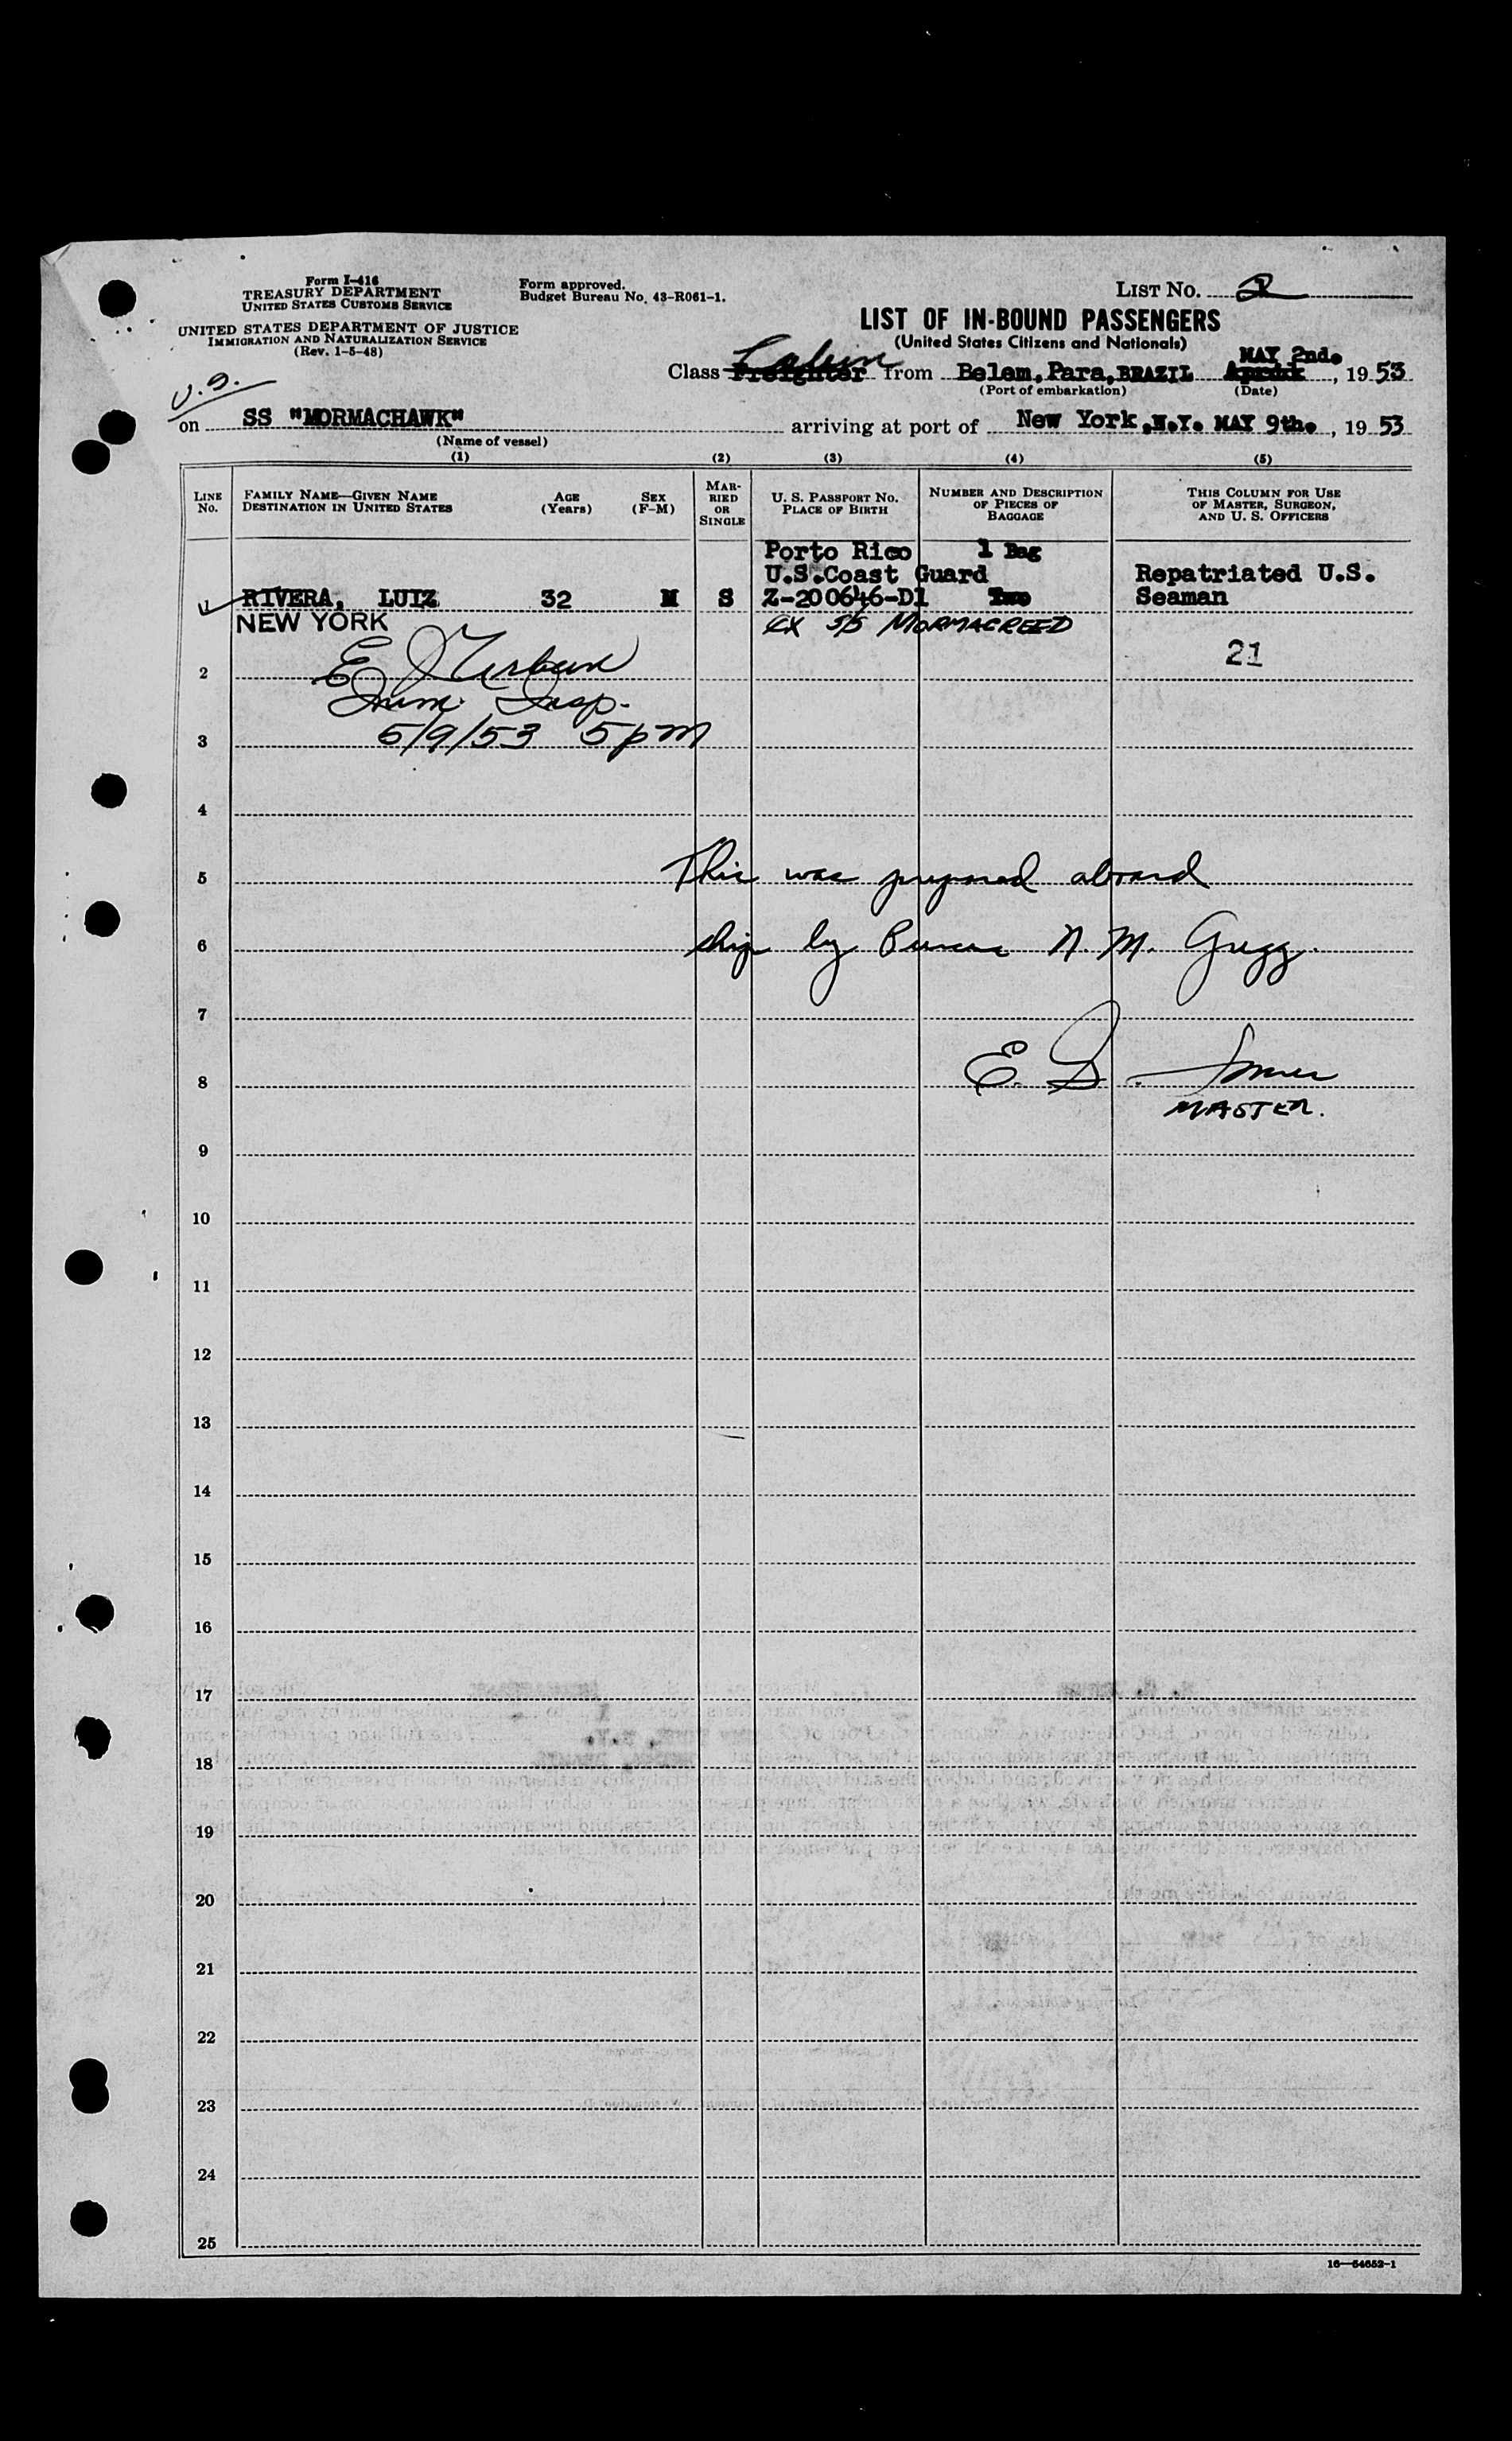 Form I-416
TREASURY DEPARTMENT
UNITED STATES CUSTOMS SERVICE
UNITED STATES DEPARTMENT OF JUSTICE
IMMIGRATION AND NATURALIZATION SERVICE
(Rev. 1-5-48)
Form approved.
Budget Bureau No. 43-R061-1.
LIST NO. 2
LIST OF IN-BOUND PASSENGERS
(United States Citizens and Nationals)
Cabin MAY 2nd.
Class Freighter from Belem, Para, BRAZIL, 19 53
(Port of embarkation) (Date)
U.S.
on SS "MORMACHAWK" arriving at port of New York, N.Y. MAY 9th., 19 53
(Name of vessel)
(1) (2) (3) (4) (5)
LINE NO.
FAMILY NAME—GIVEN NAME
DESTINATION IN UNITED STATES
AGE
(Years)
SEX
(F-M)
MAR-
RIED
OR
SINGLE
U. S. PASSPORT NO.
PLACE OF BIRTH
NUMBER AND DESCRIPTION
OF PIECES OF
BAGGAGE
THIS COLUMN FOR USE
OF MASTER, SURGEON,
AND U. S. OFFICERS
Porto Rico 1 Bag
U.S.Coast Guard Repatriated U.S.
1 RIVERA, LUIZ 32 M S Z-200646-D1 Two Seaman
NEW YORK EX S/S MORMACREED
21
2 E J Urban
Imm. Insp.
3 5/9/53 5pm
4
5 This was prepared aboard
6 ship by Purser N. M. Gregg.
7
8 E. S.
MASTER.
9
10
11
12
13
14
15
16
17
18
19
20
21
22
23
24
25
16—54652-1